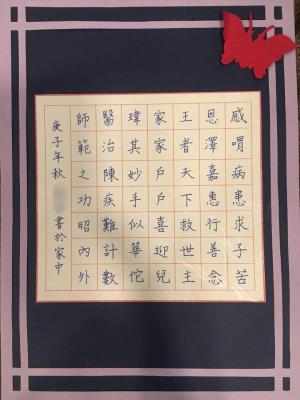 感喟病患求子苦
恩澤嘉惠行善念
王者天下救世主
家家戶戶喜迎兒
瑋其妙手似華佗
醫治陳疾難計數
師範之功昭內外
庚子年秋 書於家中